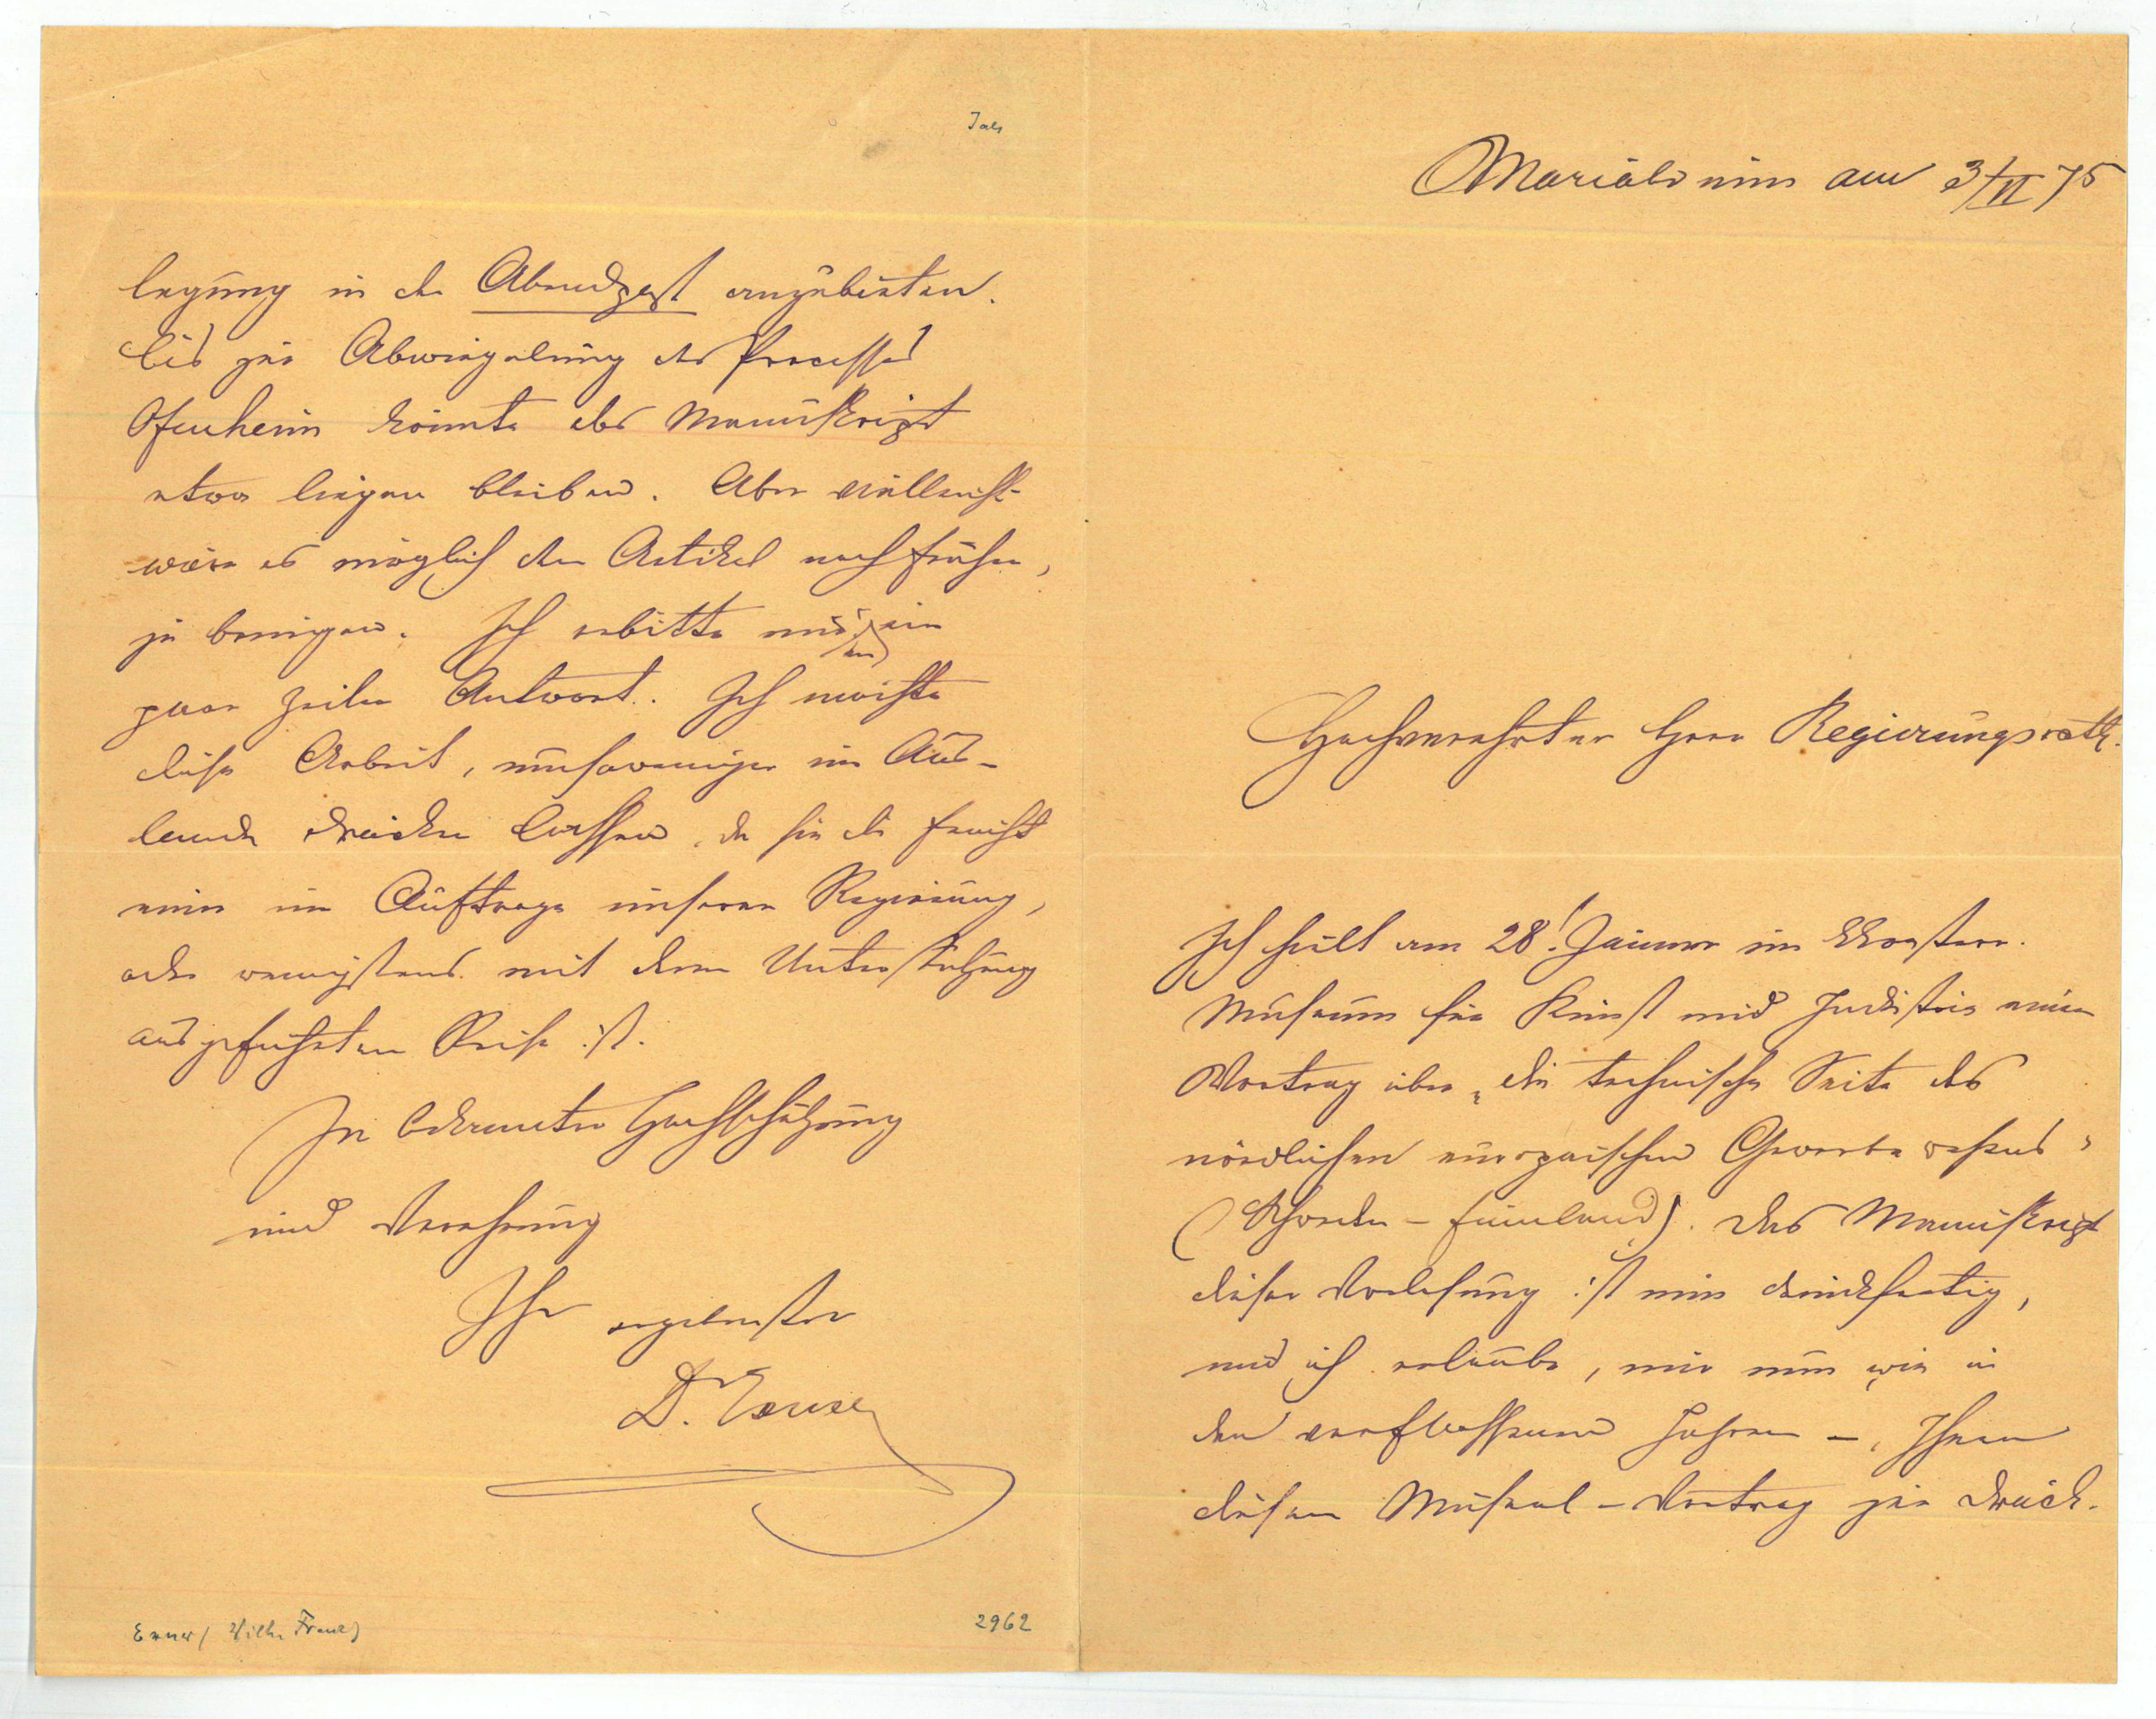 Mariabrunn am 3/II 75
Hochverehrter Herr Regierungsrath.
Ich hielt am 28! Januar im k k oesterr.
Museum für Kunst und Industrie einen
Vortrag über „die technische Seite des
nördlichen europaischen Gewerbewesens“
(Schweden – Finnland). Das Manuskript
dieser Vorlesung ist nun druckfertig,
und ich erlaube, mir nun wie in
den verflossenen Jahren –, Ihnen
diesen Museal-Vortrag zur Druck-
legung in der Abendpost anzubieten.
Bis zur Abwiegelung des Processes
Ofenheim könnte das Manuskript
etwa liegen bleiben. Aber vielleicht
wäre es möglich den Artikel noch früher,
zu bringen. Ich erbitte mir ein
paar Zeilen Antwort. Ich möchte
diese Arbeit, umsoweniger im Aus-
lande drucken lassen, da sie die Frucht
einer im Auftrage unserer Regierung,
oder wenigstens mit deren Unterstützung
ausgeführten Reise ist.
In bekannter Hochschätzung
und Verehrung
Ihr ergebenster
D. Exner
Exner (Wilh. Franz)
2962